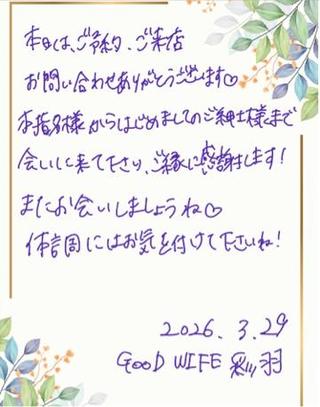 本日は、ご予約、ご来店
お問い合わせありがとうございます♡
本指名様からはじめましてのご紳士様まで
会いに来て下さり、ご縁に感謝します!
またお会いしましょうね♡
体調にはお気を付けて下さいね!
2026.3.29
GOOD WIFE 彩羽